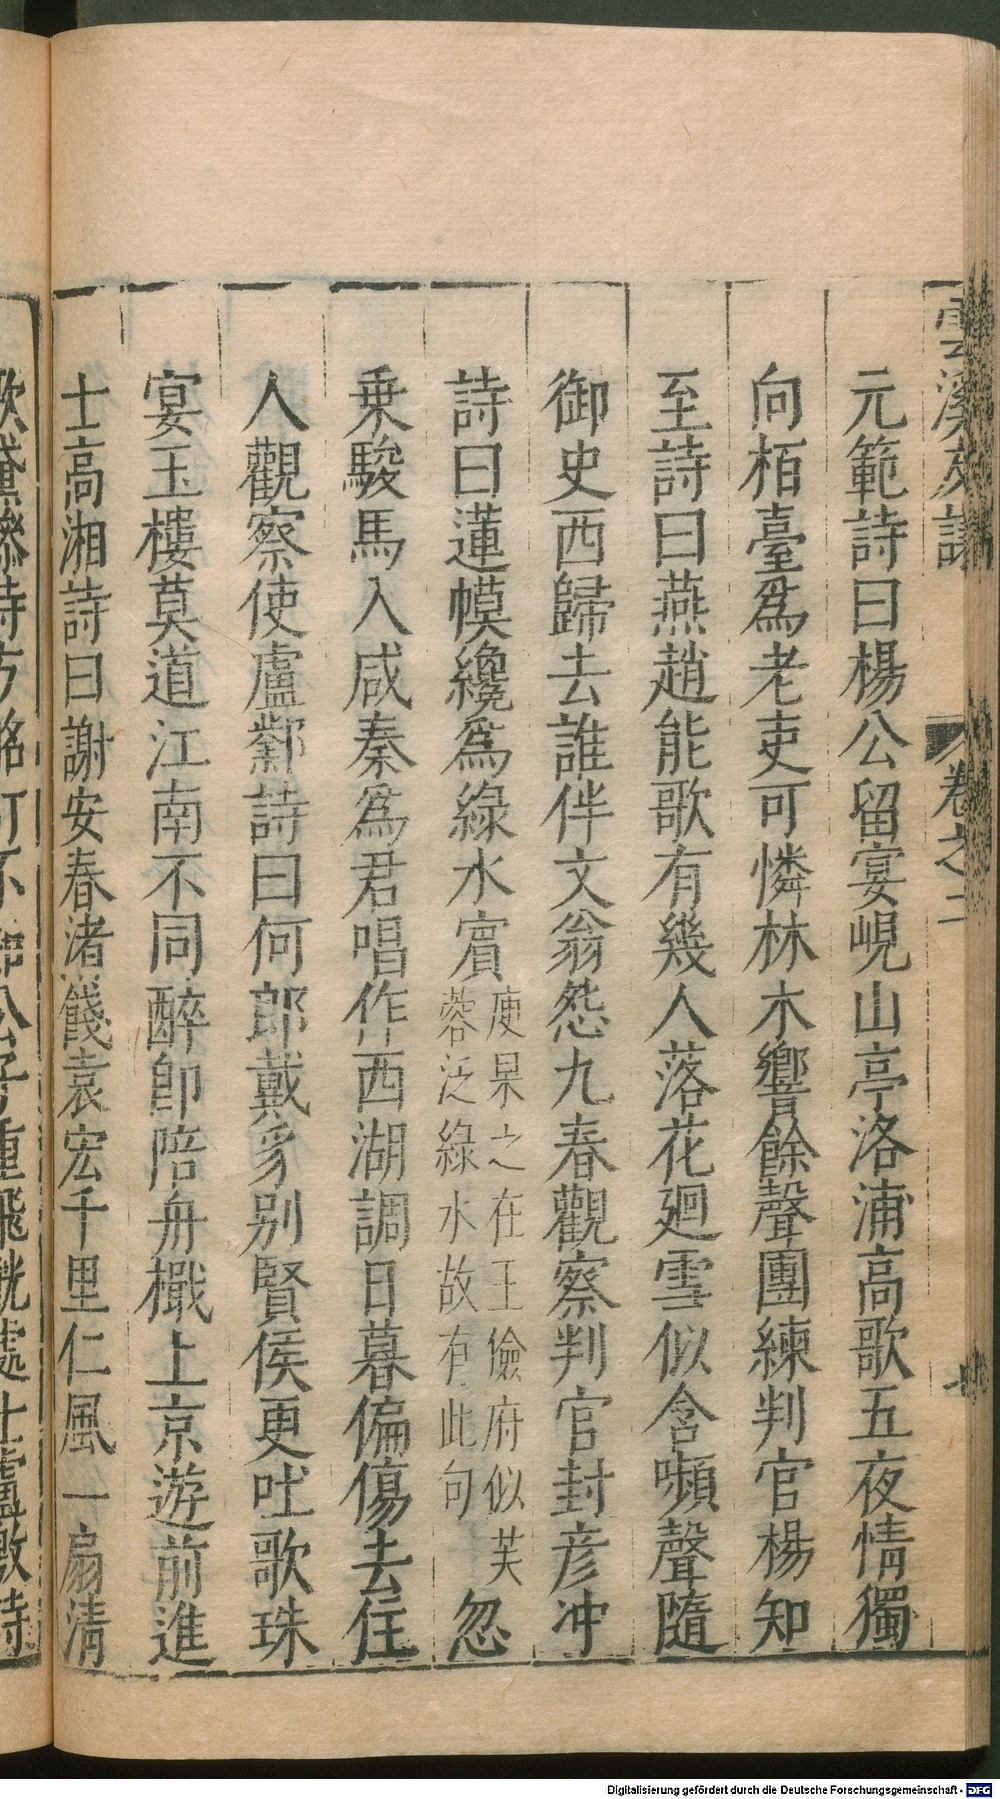 雲溪友議
卷之二
元範詩曰楊公留宴峴山亭洛浦高歌五夜情獨
向栢臺爲老吏可憐林木響餘聲團練判官楊知
至詩曰燕趙能歌有幾人落花廻雪似含嚬聲隨
御史西歸去誰伴文翁怨九春觀察判官封彦冲
詩曰蓮幙纔爲綠水賓庾杲之在王儉府似芙蓉泛綠水故有此句忽
乗駿馬入咸秦爲君唱作西湖調日暮偏傷去住
人觀察使盧鄴詩曰何郎戴豸别賢侯更吐歌珠
宴玉樓莫道江南不同醉卽陪舟檝上京遊前進
士高湘詩曰謝安春渚餞袁宏千里仁風一扇清
歌黛慘時方酩酊不知公子重飛觥處士盧潡詩
Digitalisierung gefördert durch die Deutsche Forschungsgemeinschaft - DFG